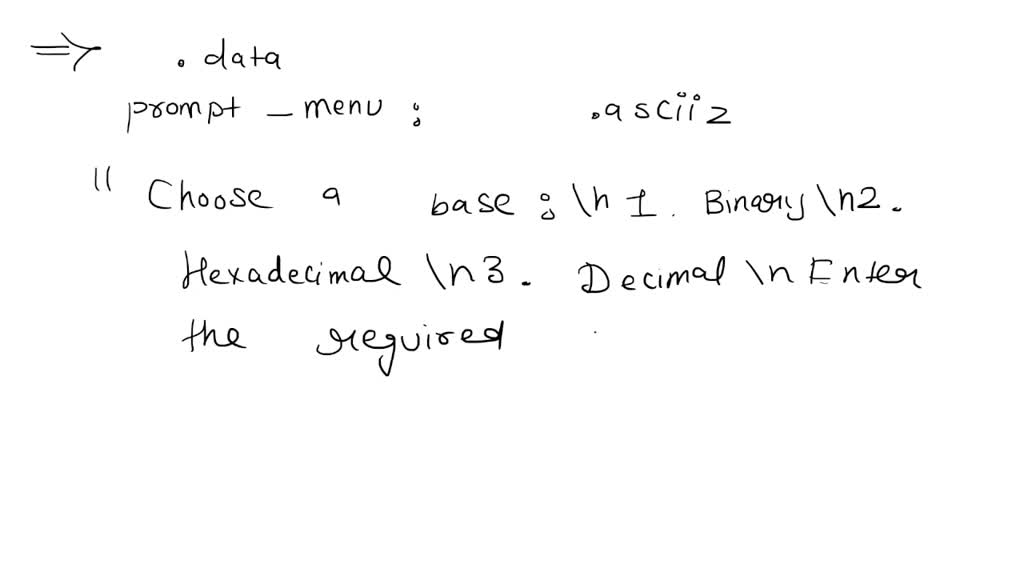 ⇒ .data
prompt_menu: .asciiz
" Choose a base:\n 1. Binary\n2.
Hexadecimal \n3. Decimal \n Enter
the required